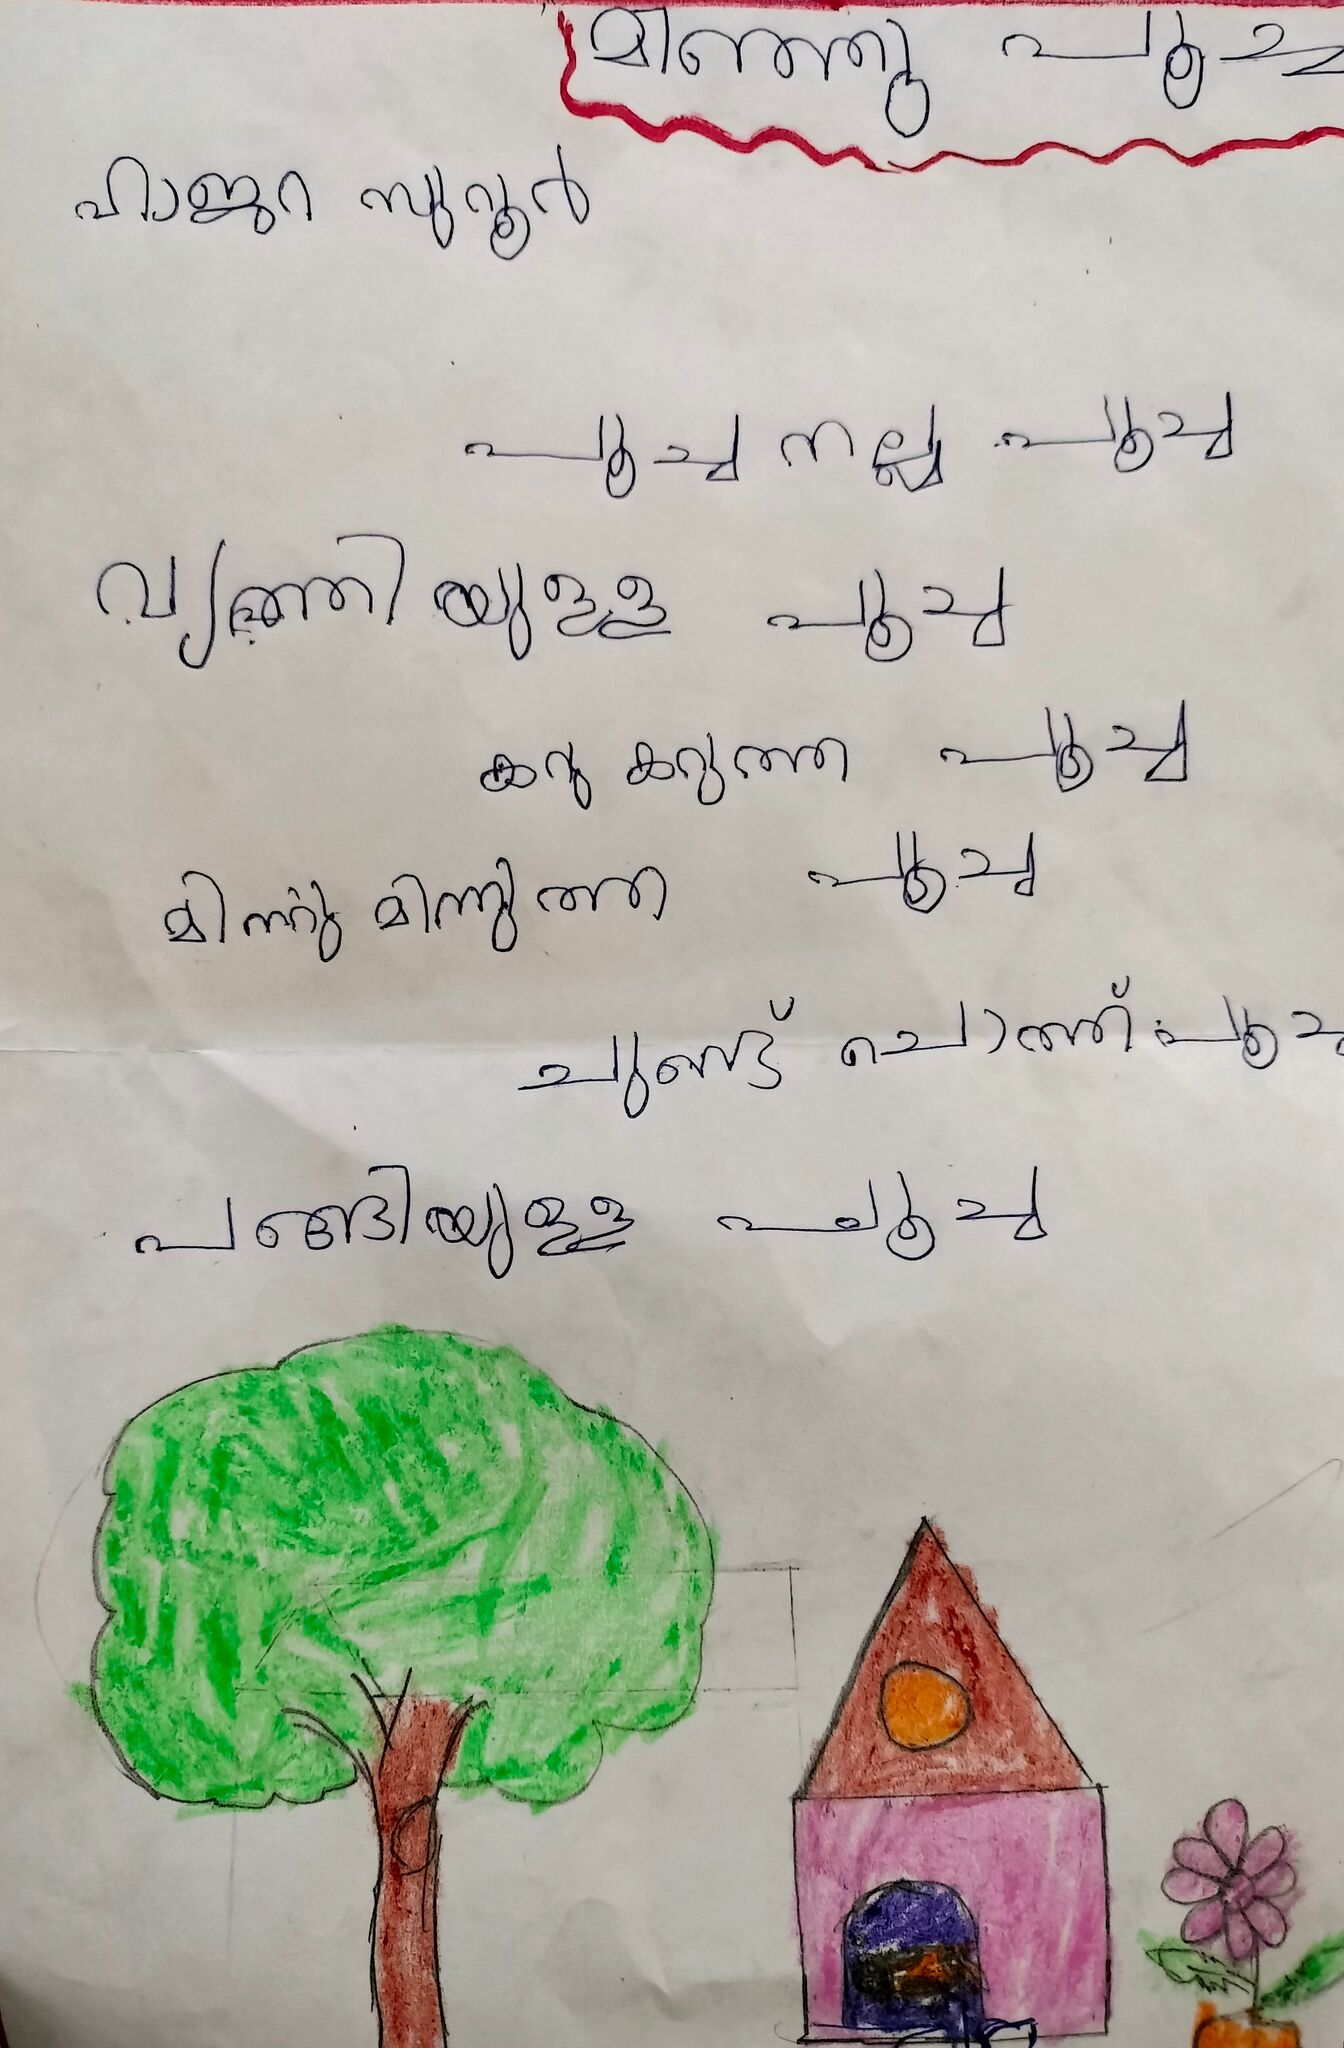 മിഞ്ഞു പൂച്ച
ഹാജറ സുവൂൻ
പൂച്ച നല്ല പൂച്ച
വൃത്തിയുള്ള പൂച്ച
കറു കറുത്ത പൂച്ച
മിന്നു മിന്നുത്ത പൂച്ച
ചുണ്ട് ചൊത്തി പൂച്ച
പങ്ങിയുള്ള പൂച്ച